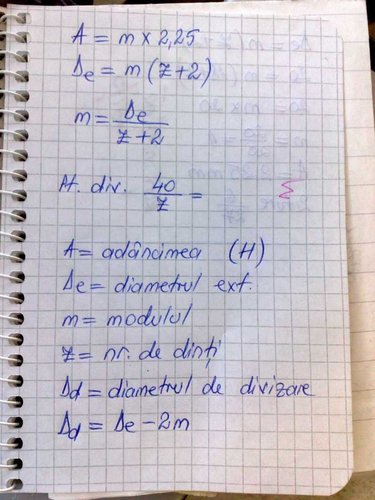 A = m × 2,25
De = m (z+2)
m = De / z+2
Ap. div. 40 / z =
A = adâncimea (H)
De = diametrul ext.
m = modulul
z = nr. de dinți
Dd = diametrul de divizare
Dd = De − 2m